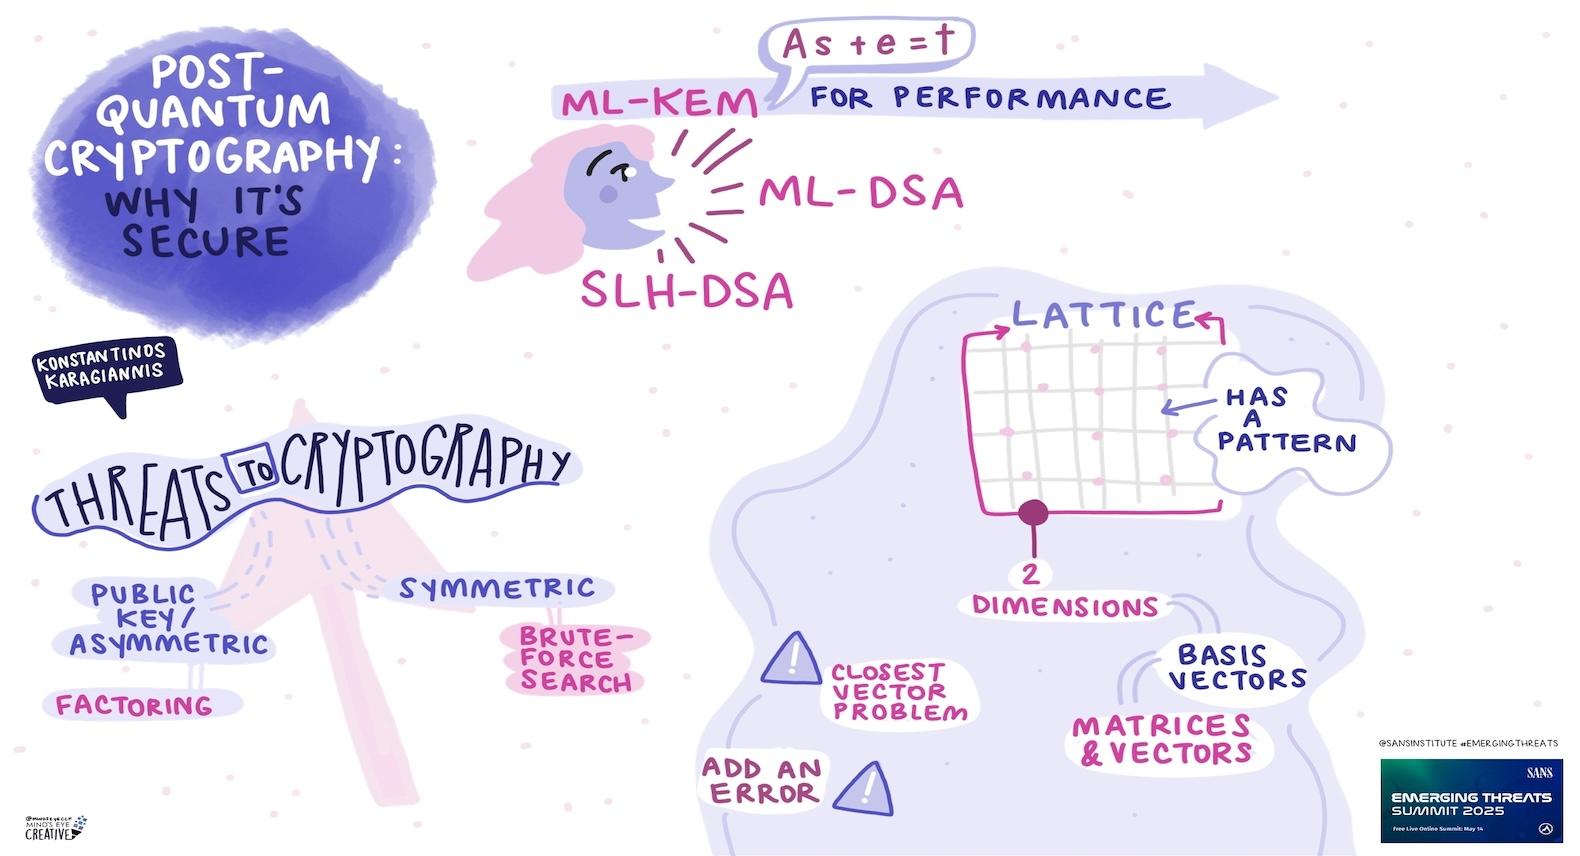 POST-
QUANTUM
CRYPTOGRAPHY:
WHY IT'S
SECURE
KONSTANTINOS
KARAGIANNIS
As + e = t
ML-KEM FOR PERFORMANCE
ML-DSA
SLH-DSA
THREATS TO CRYPTOGRAPHY
PUBLIC
KEY/
ASYMMETRIC
FACTORING
SYMMETRIC
BRUTE-
FORCE
SEARCH
LATTICE
HAS
A
PATTERN
2
DIMENSIONS
BASIS
VECTORS
MATRICES
& VECTORS
CLOSEST
VECTOR
PROBLEM
ADD AN
ERROR
@SANSINSTITUTE #EMERGINGTHREATS
SANS
EMERGING THREATS
SUMMIT 2025
Free Live Online Summit: May 14
@MINDSEYECCF
MIND'S EYE
CREATIVE